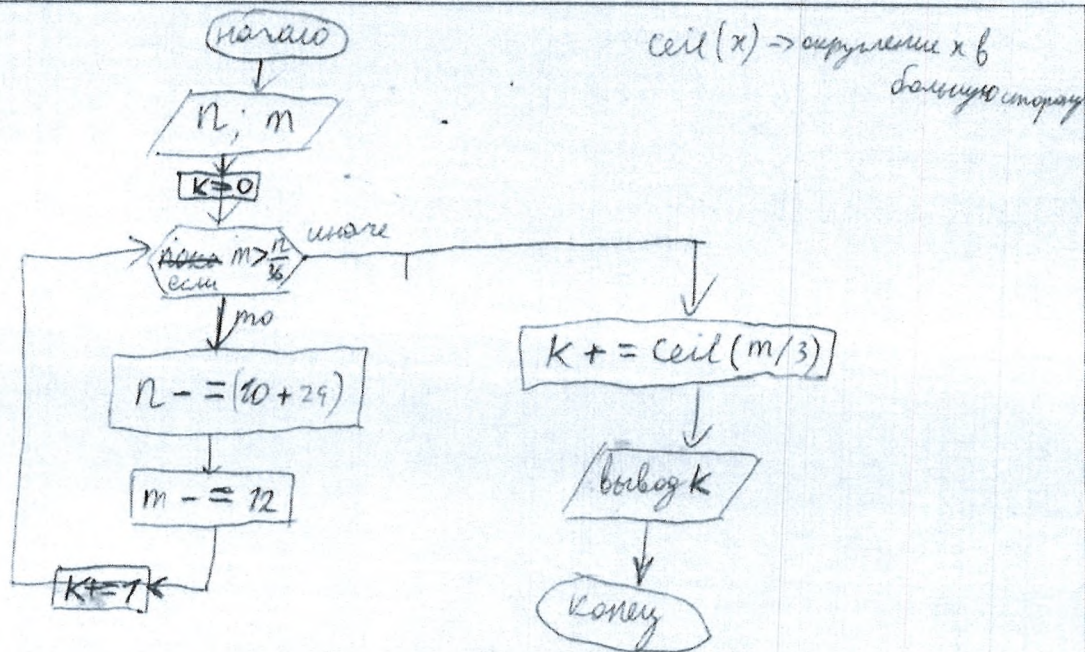 начало
ceil(x) -> округление x в
большую сторону
n; m
k=0
если m > n/36
иначе
то
n -= (10+24)
m -= 12
k+=1
k += ceil(m/3)
вывод k
конец